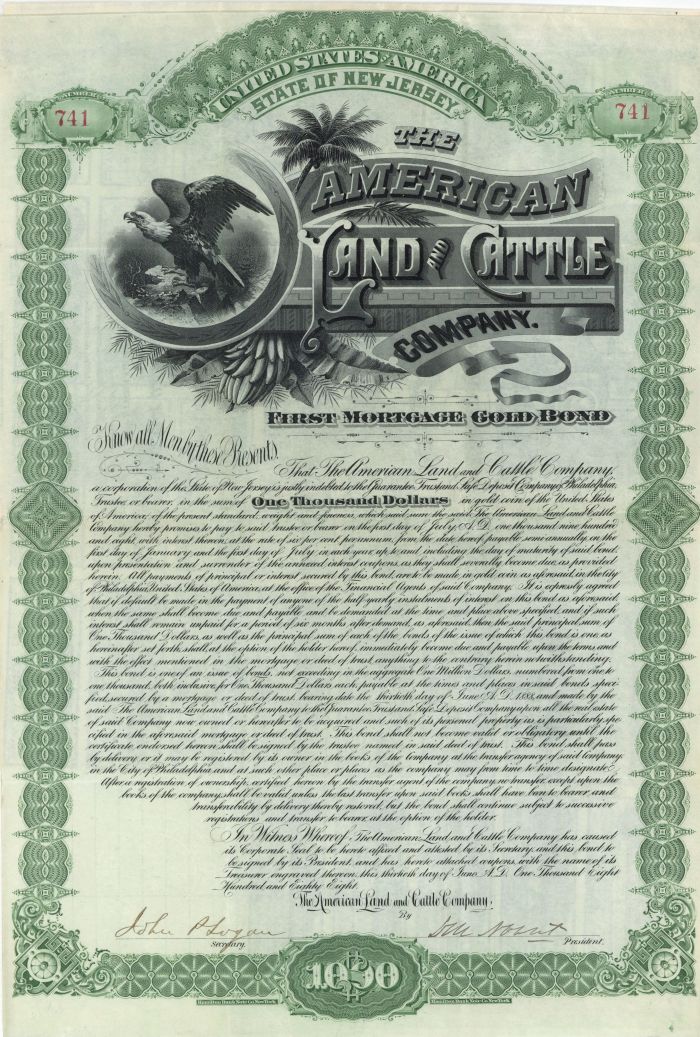 UNITED STATES OF AMERICA
STATE OF NEW JERSEY.
NUMBER
741
NUMBER
741
THE
AMERICAN
LAND AND CATTLE
COMPANY.
FIRST MORTGAGE GOLD BOND
Know all Men by these Presents,
That The American Land and Cattle Company,
a corporation of the State of New Jersey is justly indebted to the Guarantee Trust and Safe Deposit Company of Philadelphia,
Trustee or bearer, in the sum of One Thousand Dollars in gold coin of the United States
of America, of the present standard, weight and fineness, which said sum the said The American Land and Cattle
Company hereby promises to pay to said Trustee or bearer on the first day of July, A.D. one thousand nine hundred
and eight, with interest thereon, at the rate of six per cent per annum, from the date hereof, payable semi-annually, on the
first day of January and the first day of July in each year, up to and including the day of maturity of said bond,
upon presentation and surrender of the annexed interest coupons, as they shall severally become due, as provided
herein. All payments of principal or interest secured by this bond, are to be made in gold coin as aforesaid, in the City
of Philadelphia, United States of America, at the office of the Financial Agents of said Company. It is expressly agreed
that if default be made in the payment of any one of the half-yearly instalments of interest on this bond as aforesaid
when the same shall become due and payable and be demanded at the time and place above specified, and if such
interest shall remain unpaid for a period of six months after demand, as aforesaid, then the said principal sum of
One Thousand Dollars, as well as the principal sum of each of the bonds of the issue of which this bond is one, as
hereinafter set forth, shall, at the option of the holder hereof, immediately become due and payable upon the terms and
with the effect mentioned in the mortgage or deed of trust, anything to the contrary herein notwithstanding.
This bond is one of an issue of bonds, not exceeding in the aggregate One Million Dollars, numbered from one to
one thousand, both inclusive, for One Thousand Dollars each, payable at the times and places in said bonds speci-
fied, secured by a mortgage or deed of trust, bearing date the thirtieth day of June A.D. 1888, and made by the
said The American Land and Cattle Company to the Guarantee Trust and Safe Deposit Company upon all the real estate
of said Company now owned or hereafter to be acquired and such of its personal property as is particularly spe-
cified in the aforesaid mortgage or deed of trust. This bond shall not become valid or obligatory until the
certificate endorsed hereon shall be signed by the trustee named in said deed of trust. This bond shall pass
by delivery or it may be registered by its owner in the books of the Company at the transfer agency of said Company
in the City of Philadelphia, and at such other place or places as the company may from time to time designate.
After a registration of ownership, certified hereon by the transfer agent of the company, no transfer, except upon the
books of the company, shall be valid unless the last transfer upon said books shall have been to bearer and
transferability by delivery thereby restored, but the bond shall continue subject to successive
registrations and transfer to bearer, at the option of the holder.
In Witness Whereof The American Land and Cattle Company has caused
its Corporate Seal to be hereto affixed and attested by its Secretary, and this bond to
be signed by its President, and has hereto attached coupons, with the name of its
Treasurer engraved thereon, this thirtieth day of June A.D. One Thousand Eight
Hundred and Eighty Eight.
The American Land and Cattle Company,
By
John P Logan
Secretary.
President.
1000
Hamilton Bank Note Co. New York.
Hamilton Bank Note Co. New York.